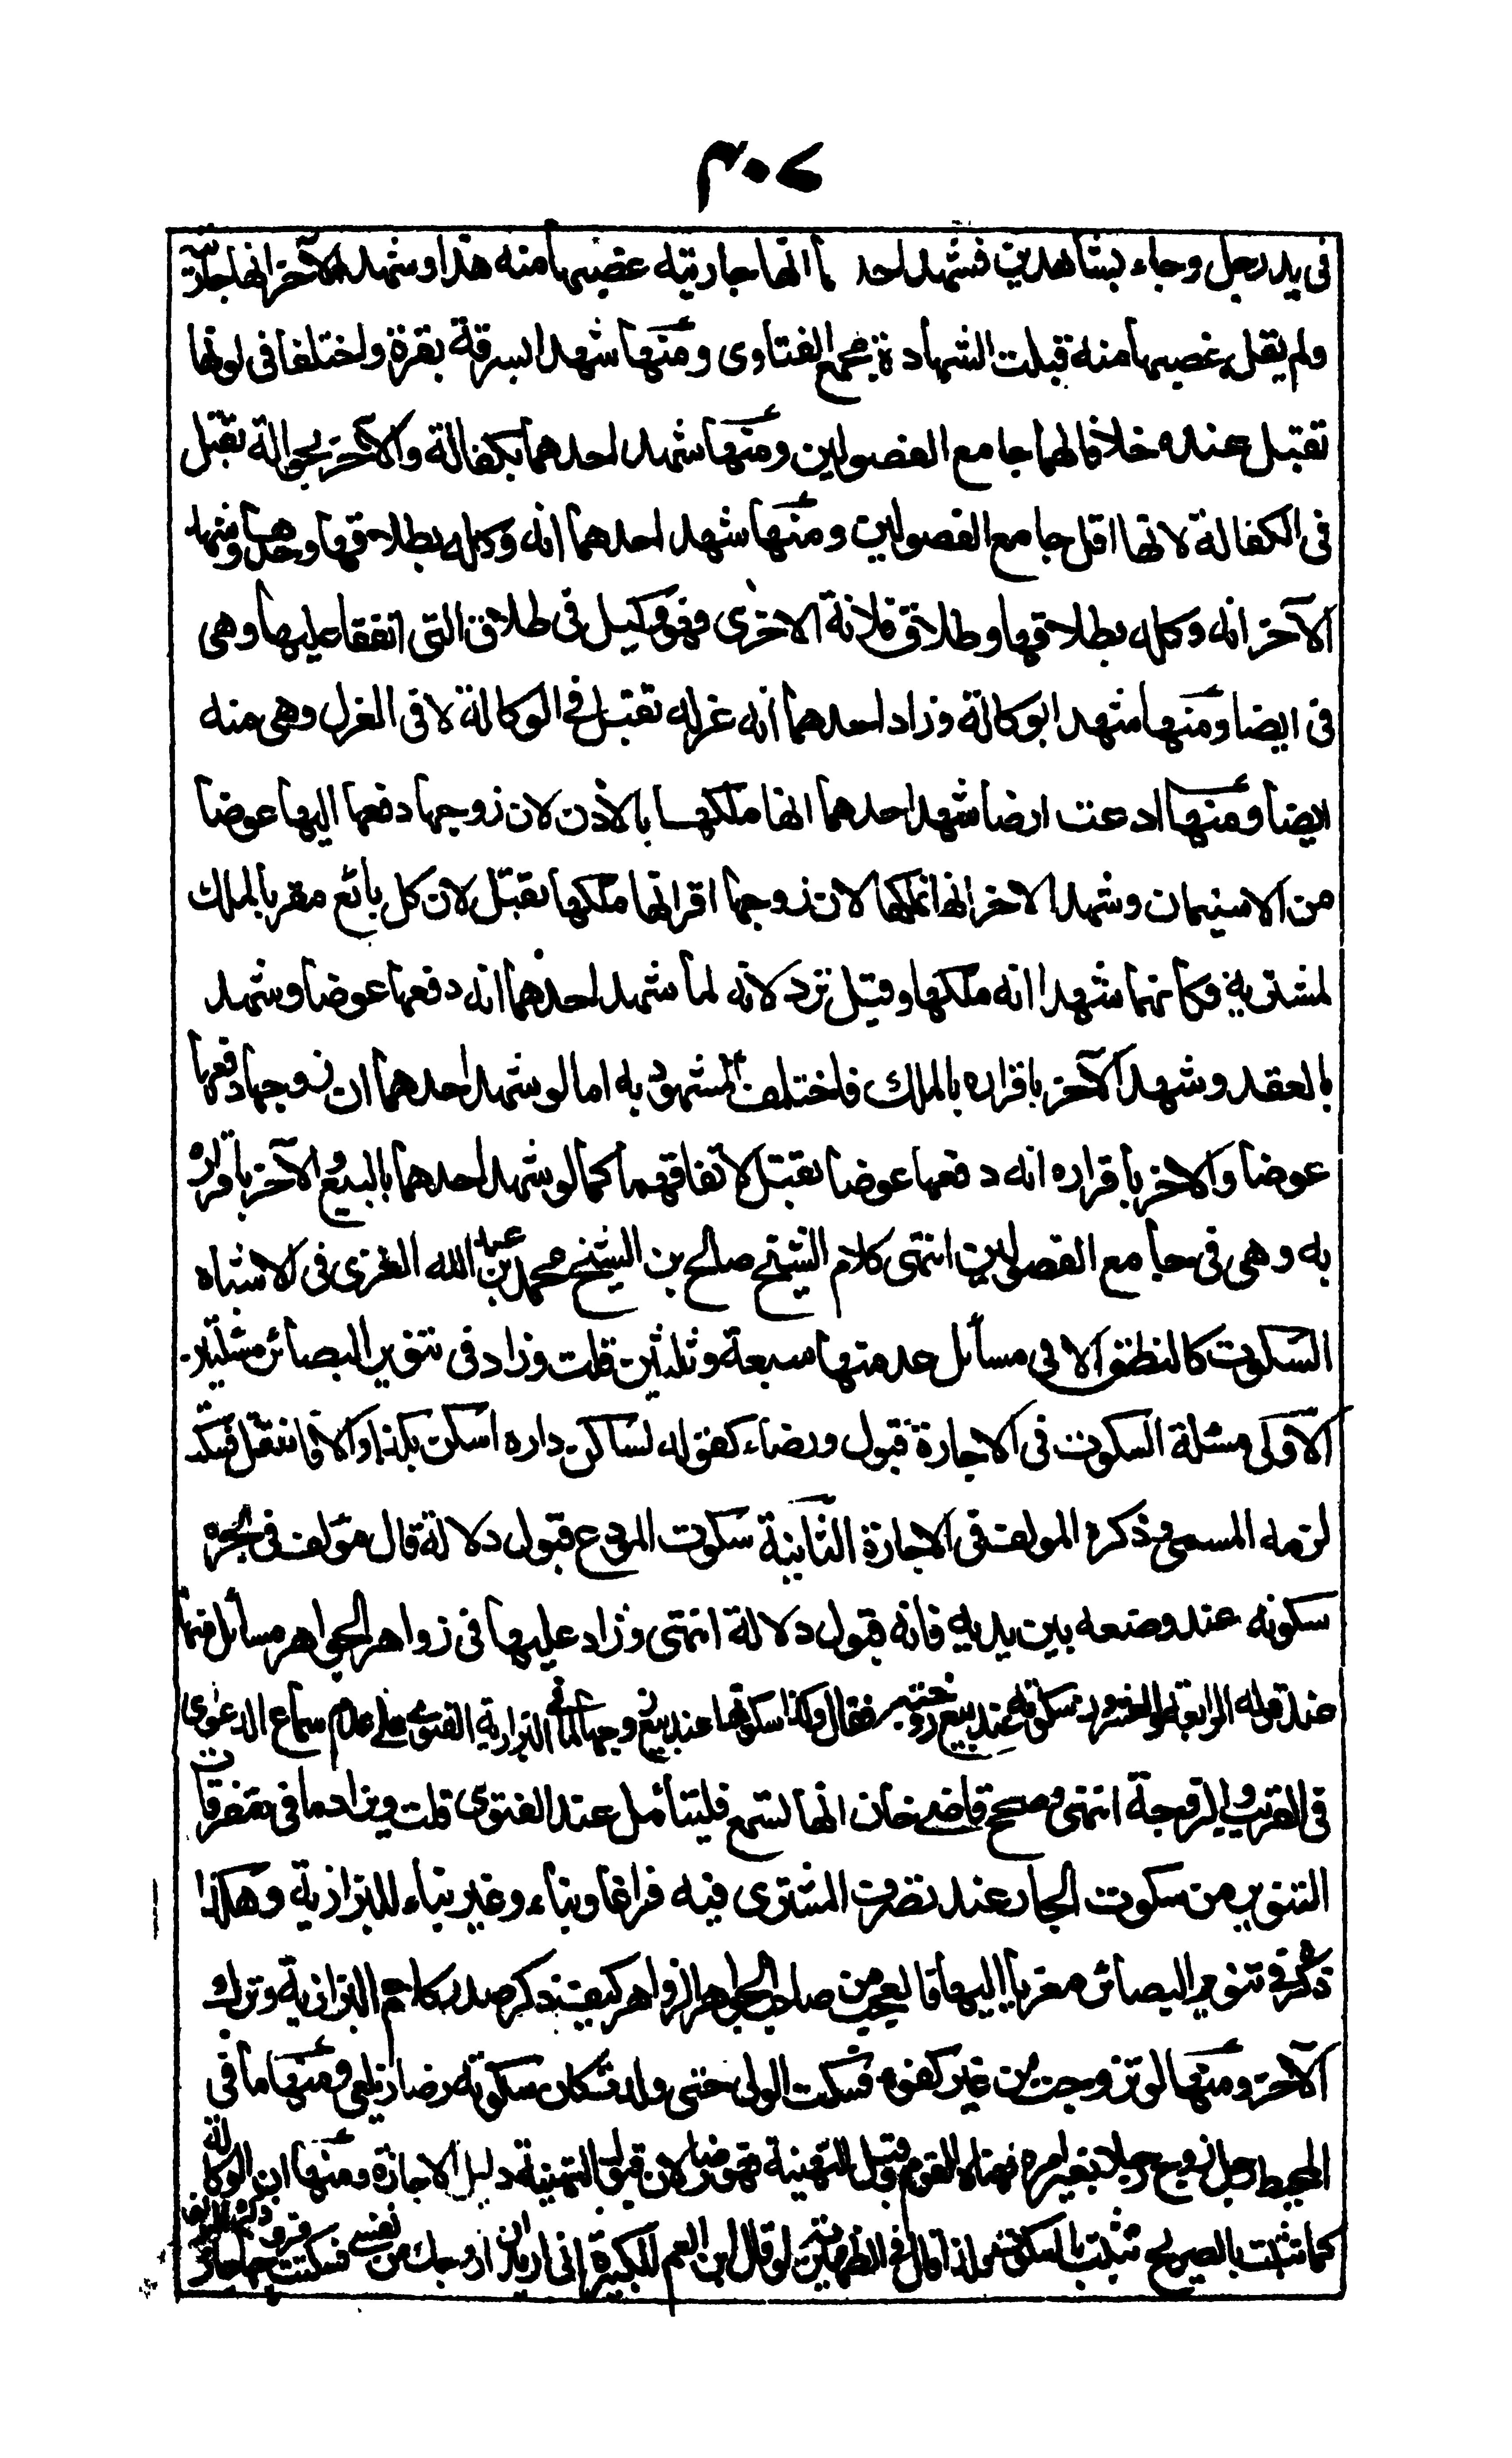 ٣٠٧
فى يد رجل وجاء بشاهدين فشهد احد ما انها جاريته غصبها منه هذا وشهد الآخر انها جاريته
ولم يقل غصبها منه قبلت الشهادة مجمع الفتاوى ومنها شهدا بسرقة بقرة واختلفا فى لونها
تقبل عنده خلافا لهما جامع الفصولين ومنها شهد احدهما بكفالة والآخر بحوالة تقبل
فى الكفالة لانها اقل جامع الفصولين ومنها شهد احدهما انه وكله بطلاقها وحدها وشهد
الآخر انه وكله بطلاقها وطلاق فلانة الاخرى فهو وكيل فى طلاق التى اتفقا عليها وهى
فى ايضا ومنها شهدا بوكالة وزاد احدهما انه عزله تقبل فى الوكالة لا فى العزل وهى منه
ايضا ومنها ادعت ارضا شهد احدهما انها ملكها بالاذن لان زوجها دفعها اليها عوضا
من الاستيمان وشهد الاخر انها تملكها لان زوجها اقر انها ملكها تقبل لان كل بائع مقر بالملك
لمشتريه فكأنهما شهدا انه ملكها وقيل ترد لانه لما شهد احدهما انه دفعها عوضا وشهد
بالعقد وشهد الآخر باقراره بالملك فاختلف المشهود به اما لو شهد احدهما ان زوجها دفعها
عوضا والاخر باقراره انه دفعها عوضا تقبل لاتفاقهما كما لو شهد احدهما بالبيع والآخر باقراره
به وهى فى جامع الفصولين انتهى كلام الشيخ صالح بن الشيخ محمد بن عبد الله الغزى فى الاشباه
السكوت كالنطق الا فى مسائل عد منها سبعة وثلثين قلت وزاد فى تنوير البصائر مسئلتين
الاولى مسئلة السكوت فى الاجارة قبول ورضاء كقوله لساكن داره اسكن بكذا والا فانتقل فسكت
لزمه المسمى وذكره المولف فى الاجارة الثانية سكوت المودع قبول دلالة قال مؤلف فى بحره
سكوته عند وضعه بين يديه فانه قبول دلالة انتهى وزاد عليها فى زواهر الجواهر مسائل منها
عند قوله الرابعة والعشرون سكوته عند بيع زوجته فقال وكذا سكوتها عند بيع زوجها لما فى البزازية الفتوى على عدم سماع الدعوى
فى القريب والزوجة انتهى وصحح قاضى خان انها تسمع فليتأمل عند الفتوى قلت ويزاد ما فى متفرقات
التنوير من سكوت الجار عند تصرف المشترى فيه فراغا وبناء وغير بناء للبزازية وهكذا
ذكره فى تنوير البصائر معزيا اليها فالعجب من صاحب الجواهر الزواهر كيف ذكر صدر كلام البزازية وترك
الآخر ومنها لو تزوجت من غير كفوء فسكت الولى حتى ولدت كان سكوته رضا زيلعى ومنها ما فى
المحيط رجل زوج رجلا بغير امره فهناه القوم وقبل التهنية فهو رضا لان قبول التهنية دليل الاجازة ومنها ان الوكالة
كما تثبت بالصريح تثبت بالسكوت ولذا قال فى الظهيرية لو قال ابن العم للكبيرة انى اريد ان ازوجك من نفسى فسكتت فزوجها جاز